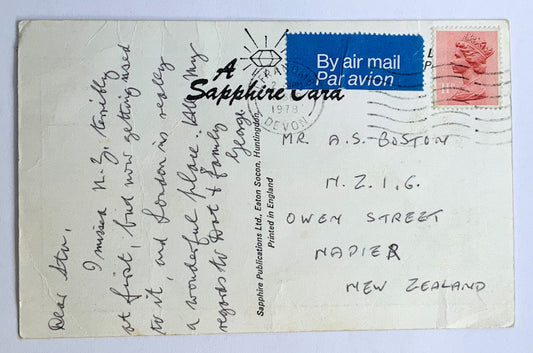 Dear Stu,
I missed N.Z. terribly
at first, but now getting used
to it, and London is really
a wonderful place. All my
regards to Dot & family
George.
A
Sapphire Card
Sapphire Publications Ltd., Eaton Socon, Huntingdon.
Printed in England
By air mail
Par avion
1979
DEVON
MR. A.S. BOSTON
N.Z.I.G.
OWEN STREET
NAPIER
NEW ZEALAND